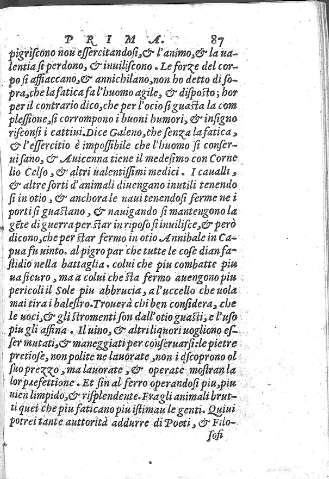 PRIMA. 87
pigriscono non essercitandosi, & l'animo, & la ua-
lentia si perdono, & inuiliscono. Le forze del cor-
po si affiaccano, & annichilano, non ho detto di so-
pra, che la fatica fa l'huomo agile, & disposto; hor
per il contrario dico, che per l'ocio si guasta la com
plessione, si corrompono i buoni humori, & insigno
riscono i cattiui. Dice Galeno, che senza la fatica,
& l'essercitio è impossibile che l'huomo si conser-
ui sano, & Auicenna tiene il medesimo con Corne
lio Celso, & altri ualentissimi medici. I caualli,
& altre sorti d'animali diuengano inutili tenendo
si in otio, & anchora le naui tenendosi ferme ne i
porti si guastano, & nauigando si mantengono la
gẽte di guerra per star in riposo si inuilisce, & però
dicono, che per star fermo in otio Annibale in Ca-
pua fu uinto. al pigro par che tutte le cose dian fa-
stidio nella battaglia. colui che piu combatte piu
ua sicuro, ma a colui che sta fermo auengono piu
pericoli il Sole piu abbrucia, a l'uccello che uola
mai tira i balestro. Trouerà chi ben considera, che
le uoci, & gli stromenti son dall'otio guasti, e l'uso
piu gli affina. Il uino, & altri liquori uogliono es-
ser mutati, & maneggiati per conseruarsi: le pietre
pretiose, non polite ne lauorate, non i discoprono ol
suo prezzo, ma lauorate, & operate mostran la
lor perfettione. Et sin al ferro operandosi piu, piu
uien limpido, & risplendente. Fra gli animali brut-
ti quei che piu faticano piu istimau le genti. Quiui
potrei tante auttorità addurre di Poeti, & Filo-
sofi